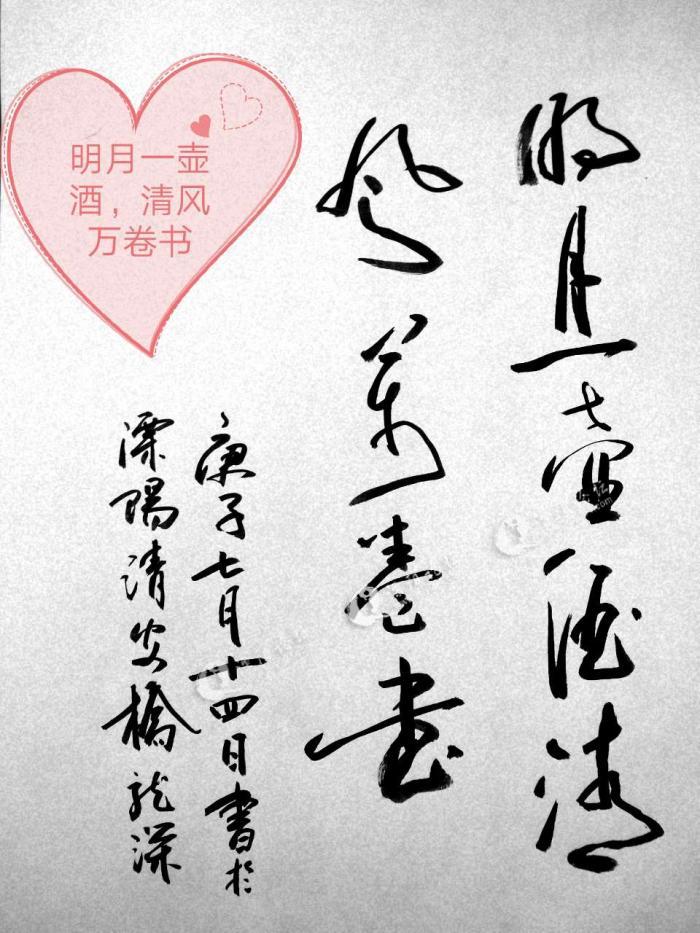 明月一壶
酒，清风
万卷书
明月一壶酒清
风万卷书
庚子七月十四日书於
溧陽清安橋龙深